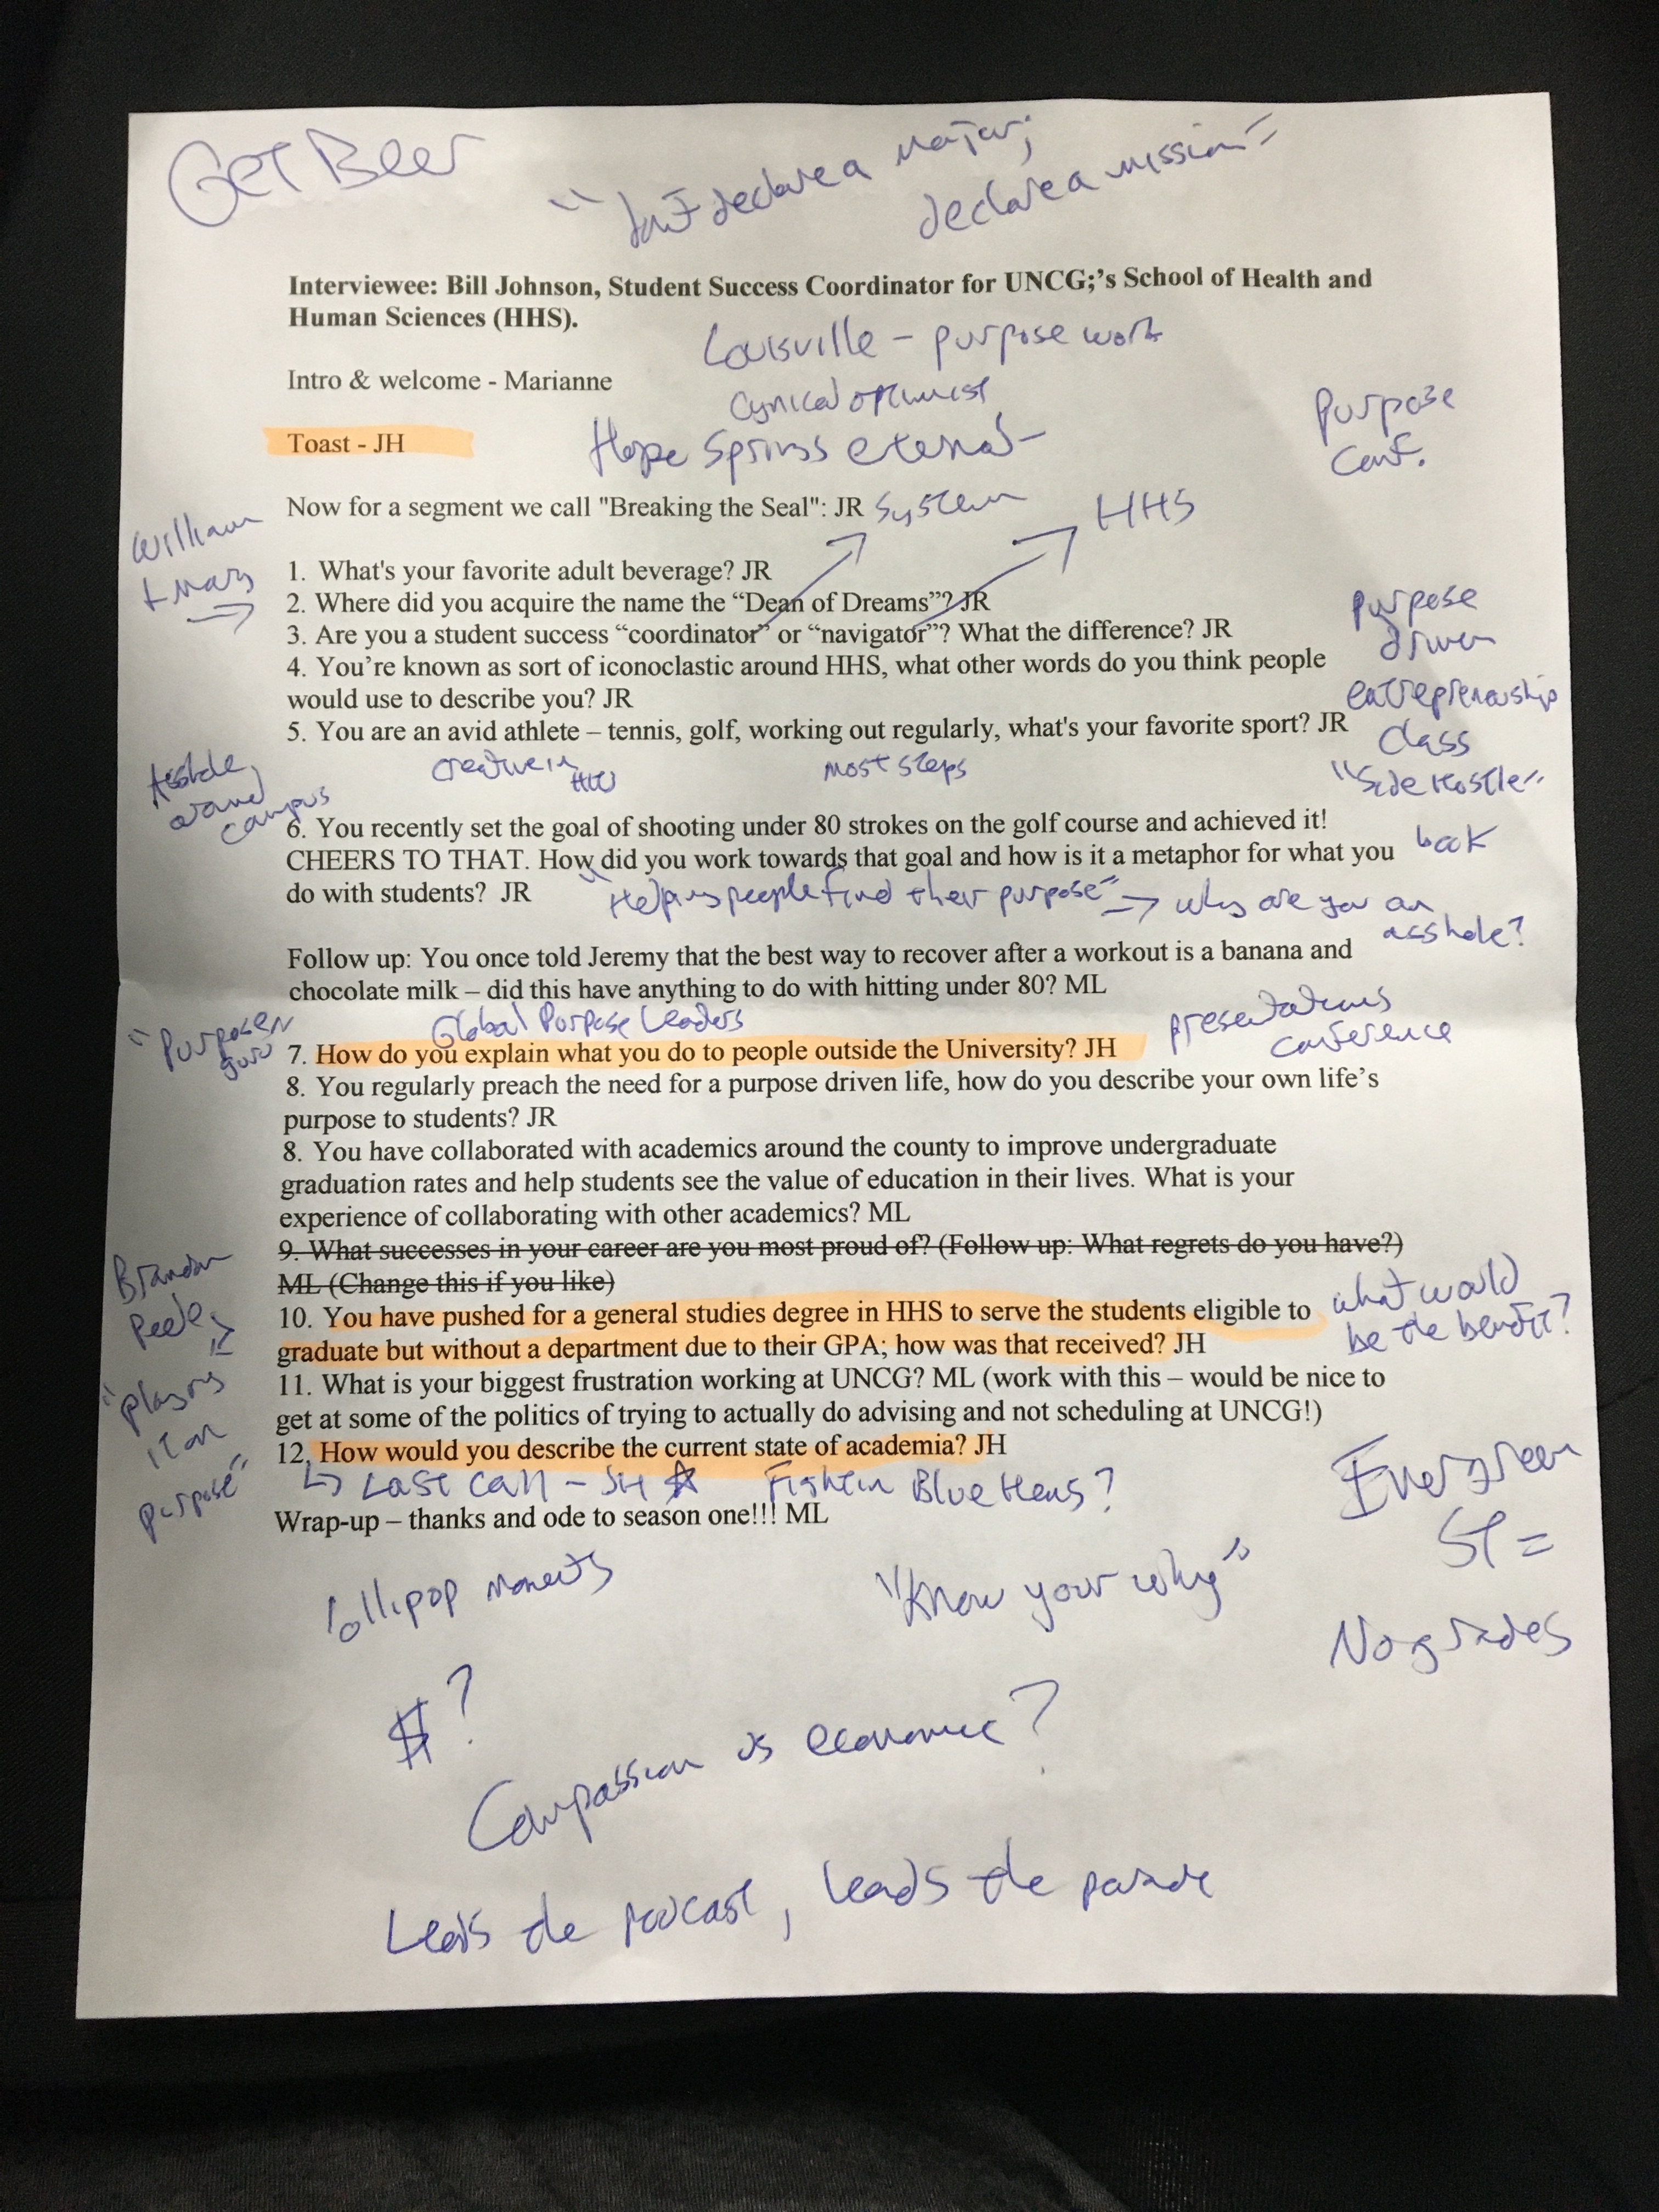 Get Beer
"Don't declare a major;
declare a mission"
Interviewee: Bill Johnson, Student Success Coordinator for UNCG;'s School of Health and
Human Sciences (HHS).
Louisville – purpose work
Intro & welcome - Marianne
Cynical optimist
Purpose
Conf.
Toast - JH
Hope Springs eternal –
Now for a segment we call "Breaking the Seal": JR
System
HHS
William
+ Mary
1. What's your favorite adult beverage? JR
2. Where did you acquire the name the “Dean of Dreams”? JR
3. Are you a student success “coordinator” or “navigator”? What the difference? JR
4. You’re known as sort of iconoclastic around HHS, what other words do you think people
would use to describe you? JR
5. You are an avid athlete – tennis, golf, working out regularly, what's your favorite sport? JR
Purpose
driven
entreprenership
class
"Side Hostle"
book
Asshole
around
campus
creative in
most steps
6. You recently set the goal of shooting under 80 strokes on the golf course and achieved it!
CHEERS TO THAT. How did you work towards that goal and how is it a metaphor for what you
do with students? JR
"Helping people find their purpose" → why are you an
asshole?
Follow up: You once told Jeremy that the best way to recover after a workout is a banana and
chocolate milk – did this have anything to do with hitting under 80? ML
"Purpose
guru
Global Purpose Leaders
presentations
conference
7. How do you explain what you do to people outside the University? JH
8. You regularly preach the need for a purpose driven life, how do you describe your own life’s
purpose to students? JR
8. You have collaborated with academics around the county to improve undergraduate
graduation rates and help students see the value of education in their lives. What is your
experience of collaborating with other academics? ML
9. What successes in your career are you most proud of? (Follow up: What regrets do you have?)
ML (Change this if you like)
10. You have pushed for a general studies degree in HHS to serve the students eligible to
graduate but without a department due to their GPA; how was that received? JH
what would
be the benefit?
11. What is your biggest frustration working at UNCG? ML (work with this – would be nice to
get at some of the politics of trying to actually do advising and not scheduling at UNCG!)
12. How would you describe the current state of academia? JH
Brandon
Peele
"playing
it on
purpose"
↳ Last call – JH ☆
Fightin Blue Hens?
Wrap-up – thanks and ode to season one!!! ML
Evergreen
St =
No grades
lollipop moments
"Know your why"
$?
Compassion vs economic?
Leads the podcast, leads the parade